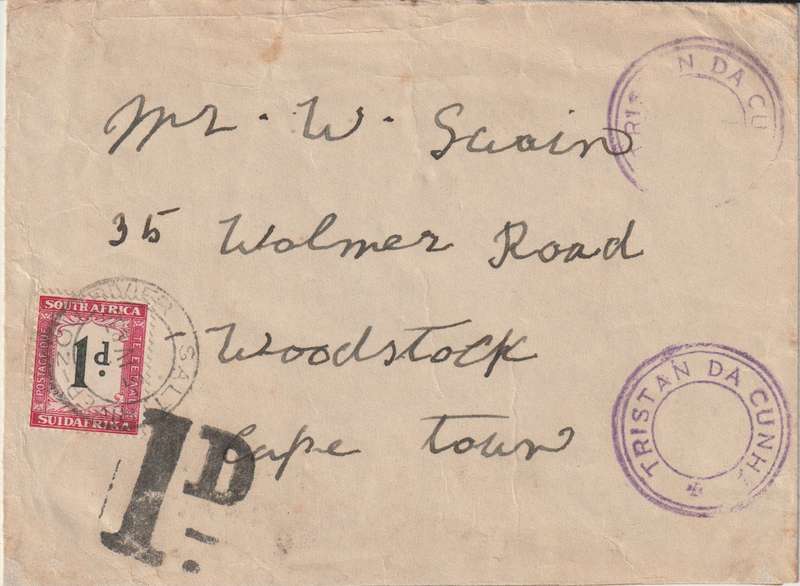 TRISTAN DA CU
Mr. W. Swain
35 Wolmer Road
Woodstock
Cape Town
SOUTH AFRICA
POSTAGE DUE
TE BETAAL
1d.
SUIDAFRIKA
1D
TRISTAN DA CUNHA